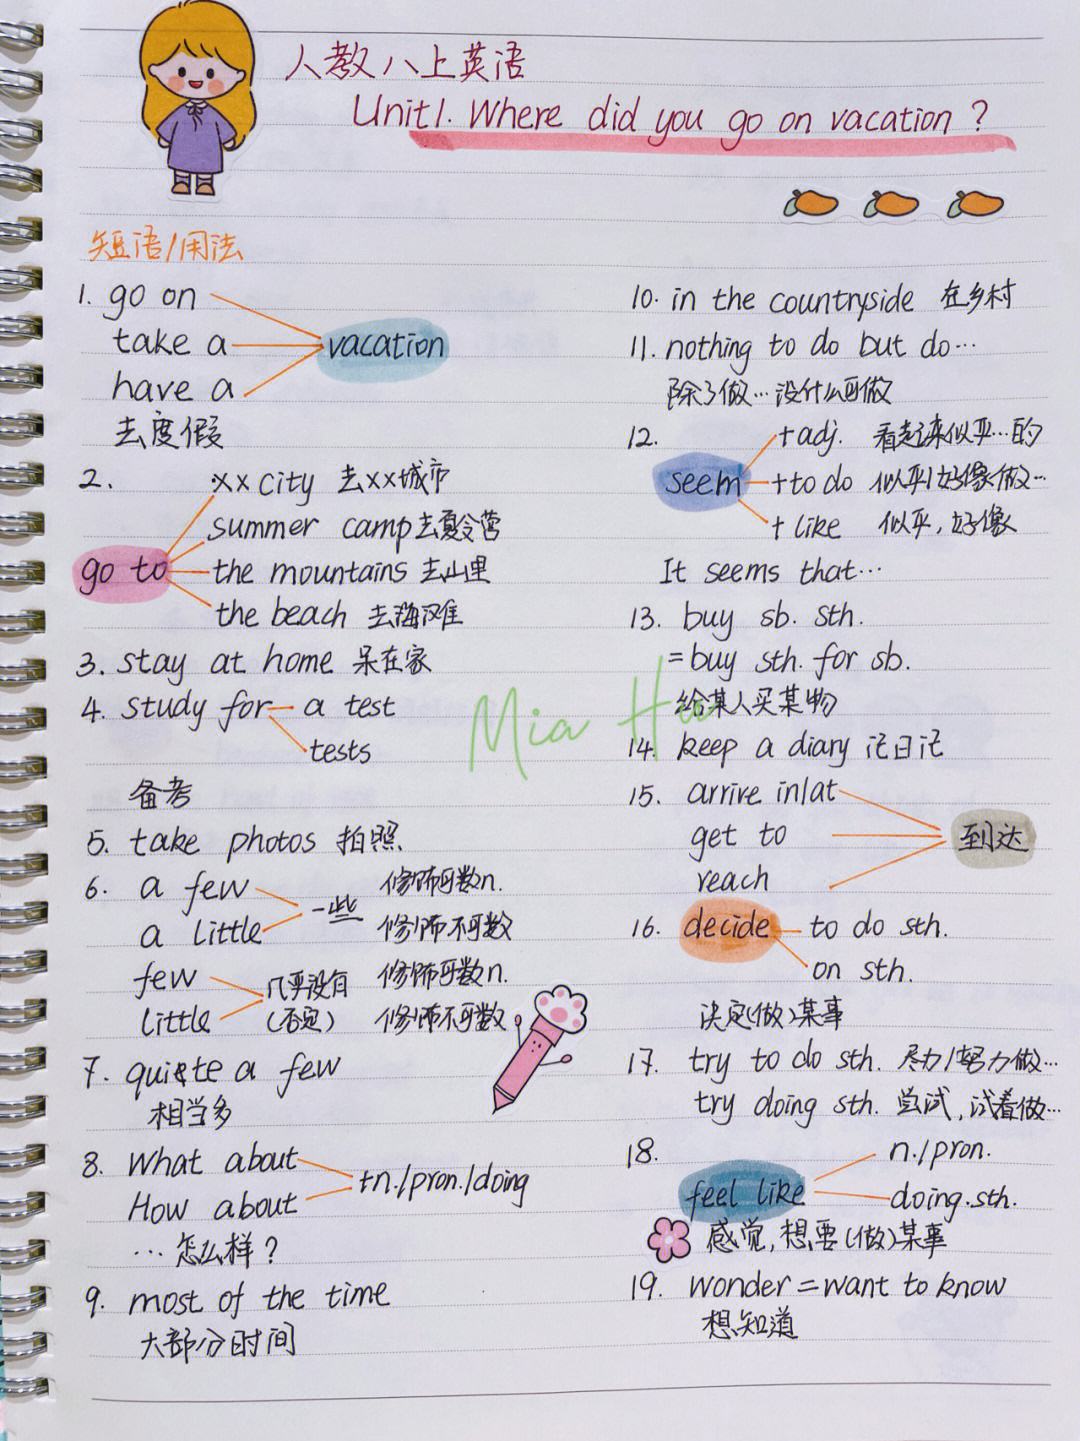 人教八上英语
Unit1. Where did you go on vacation ?
短语/用法
1. go on
take a
have a
vacation
去度假
2.
go to
xx city 去xx城市
summer camp 去夏令营
the mountains 去山里
the beach 去海滩
3. stay at home 呆在家
4. study for a test
tests
备考
5. take photos 拍照
6. a few
a little
一些
修饰可数n.
修饰不可数
few
little
几乎没有
(否定)
修饰可数n.
修饰不可数
7. quite a few
相当多
8. What about
How about
+n./pron./doing
…怎么样？
9. most of the time
大部分时间
10. in the countryside 在乡村
11. nothing to do but do…
除了做…没什么可做
12.
seem
+adj. 看起来似乎…的
+to do 似乎/好像做…
+ like 似乎，好像
It seems that…
13. buy sb. sth.
=buy sth. for sb.
给某人买某物
Mia Hu
14. keep a diary 记日记
15. arrive in/at
get to
reach
到达
16. decide to do sth.
on sth.
决定(做)某事
17. try to do sth. 尽力/努力做…
try doing sth. 尝试，试着做…
18.
feel like
n./pron.
doing.sth.
感觉，想要(做)某事
19. wonder=want to know
想知道